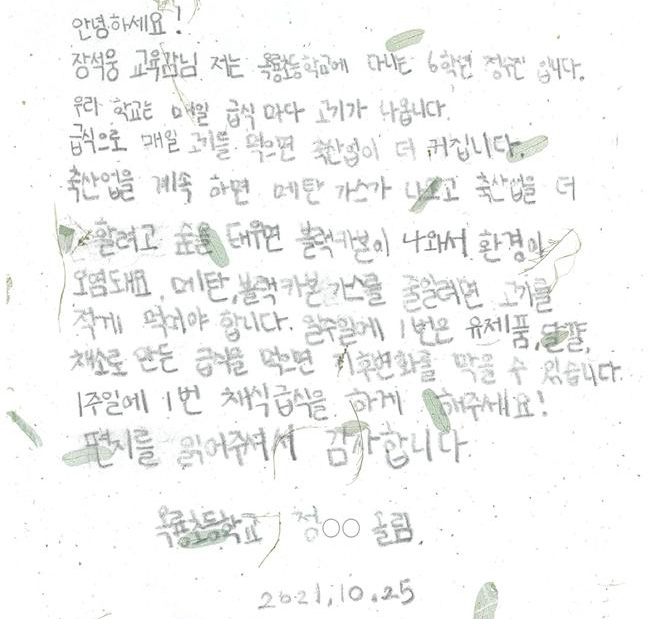 안녕하세요!
장석웅 교육감님 저는 옥룡초등학교에 다니는 6학년 정수진 입니다.
우리 학교는 매일 급식 마다 고기가 나옵니다.
급식으로 매일 고기를 먹으면 축산업이 더 커집니다.
축산업을 계속 하면 메탄 가스가 나오고 축산업을 더
할려고 숲을 태우면 블랙카본이 나와서 환경이
오염돼요. 메탄,블랙카본 가스를 줄일려면 고기를
적게 먹어야 합니다. 일주일에 1번은 유제품,달걀,
채소로 만든 급식을 먹으면 기후변화를 막을 수 있습니다.
1주일에 1번 채식급식을 하게 해주세요!
편지를 읽어주셔서 감사합니다
옥룡초등학교 정○○ 올림.
2021.10.25